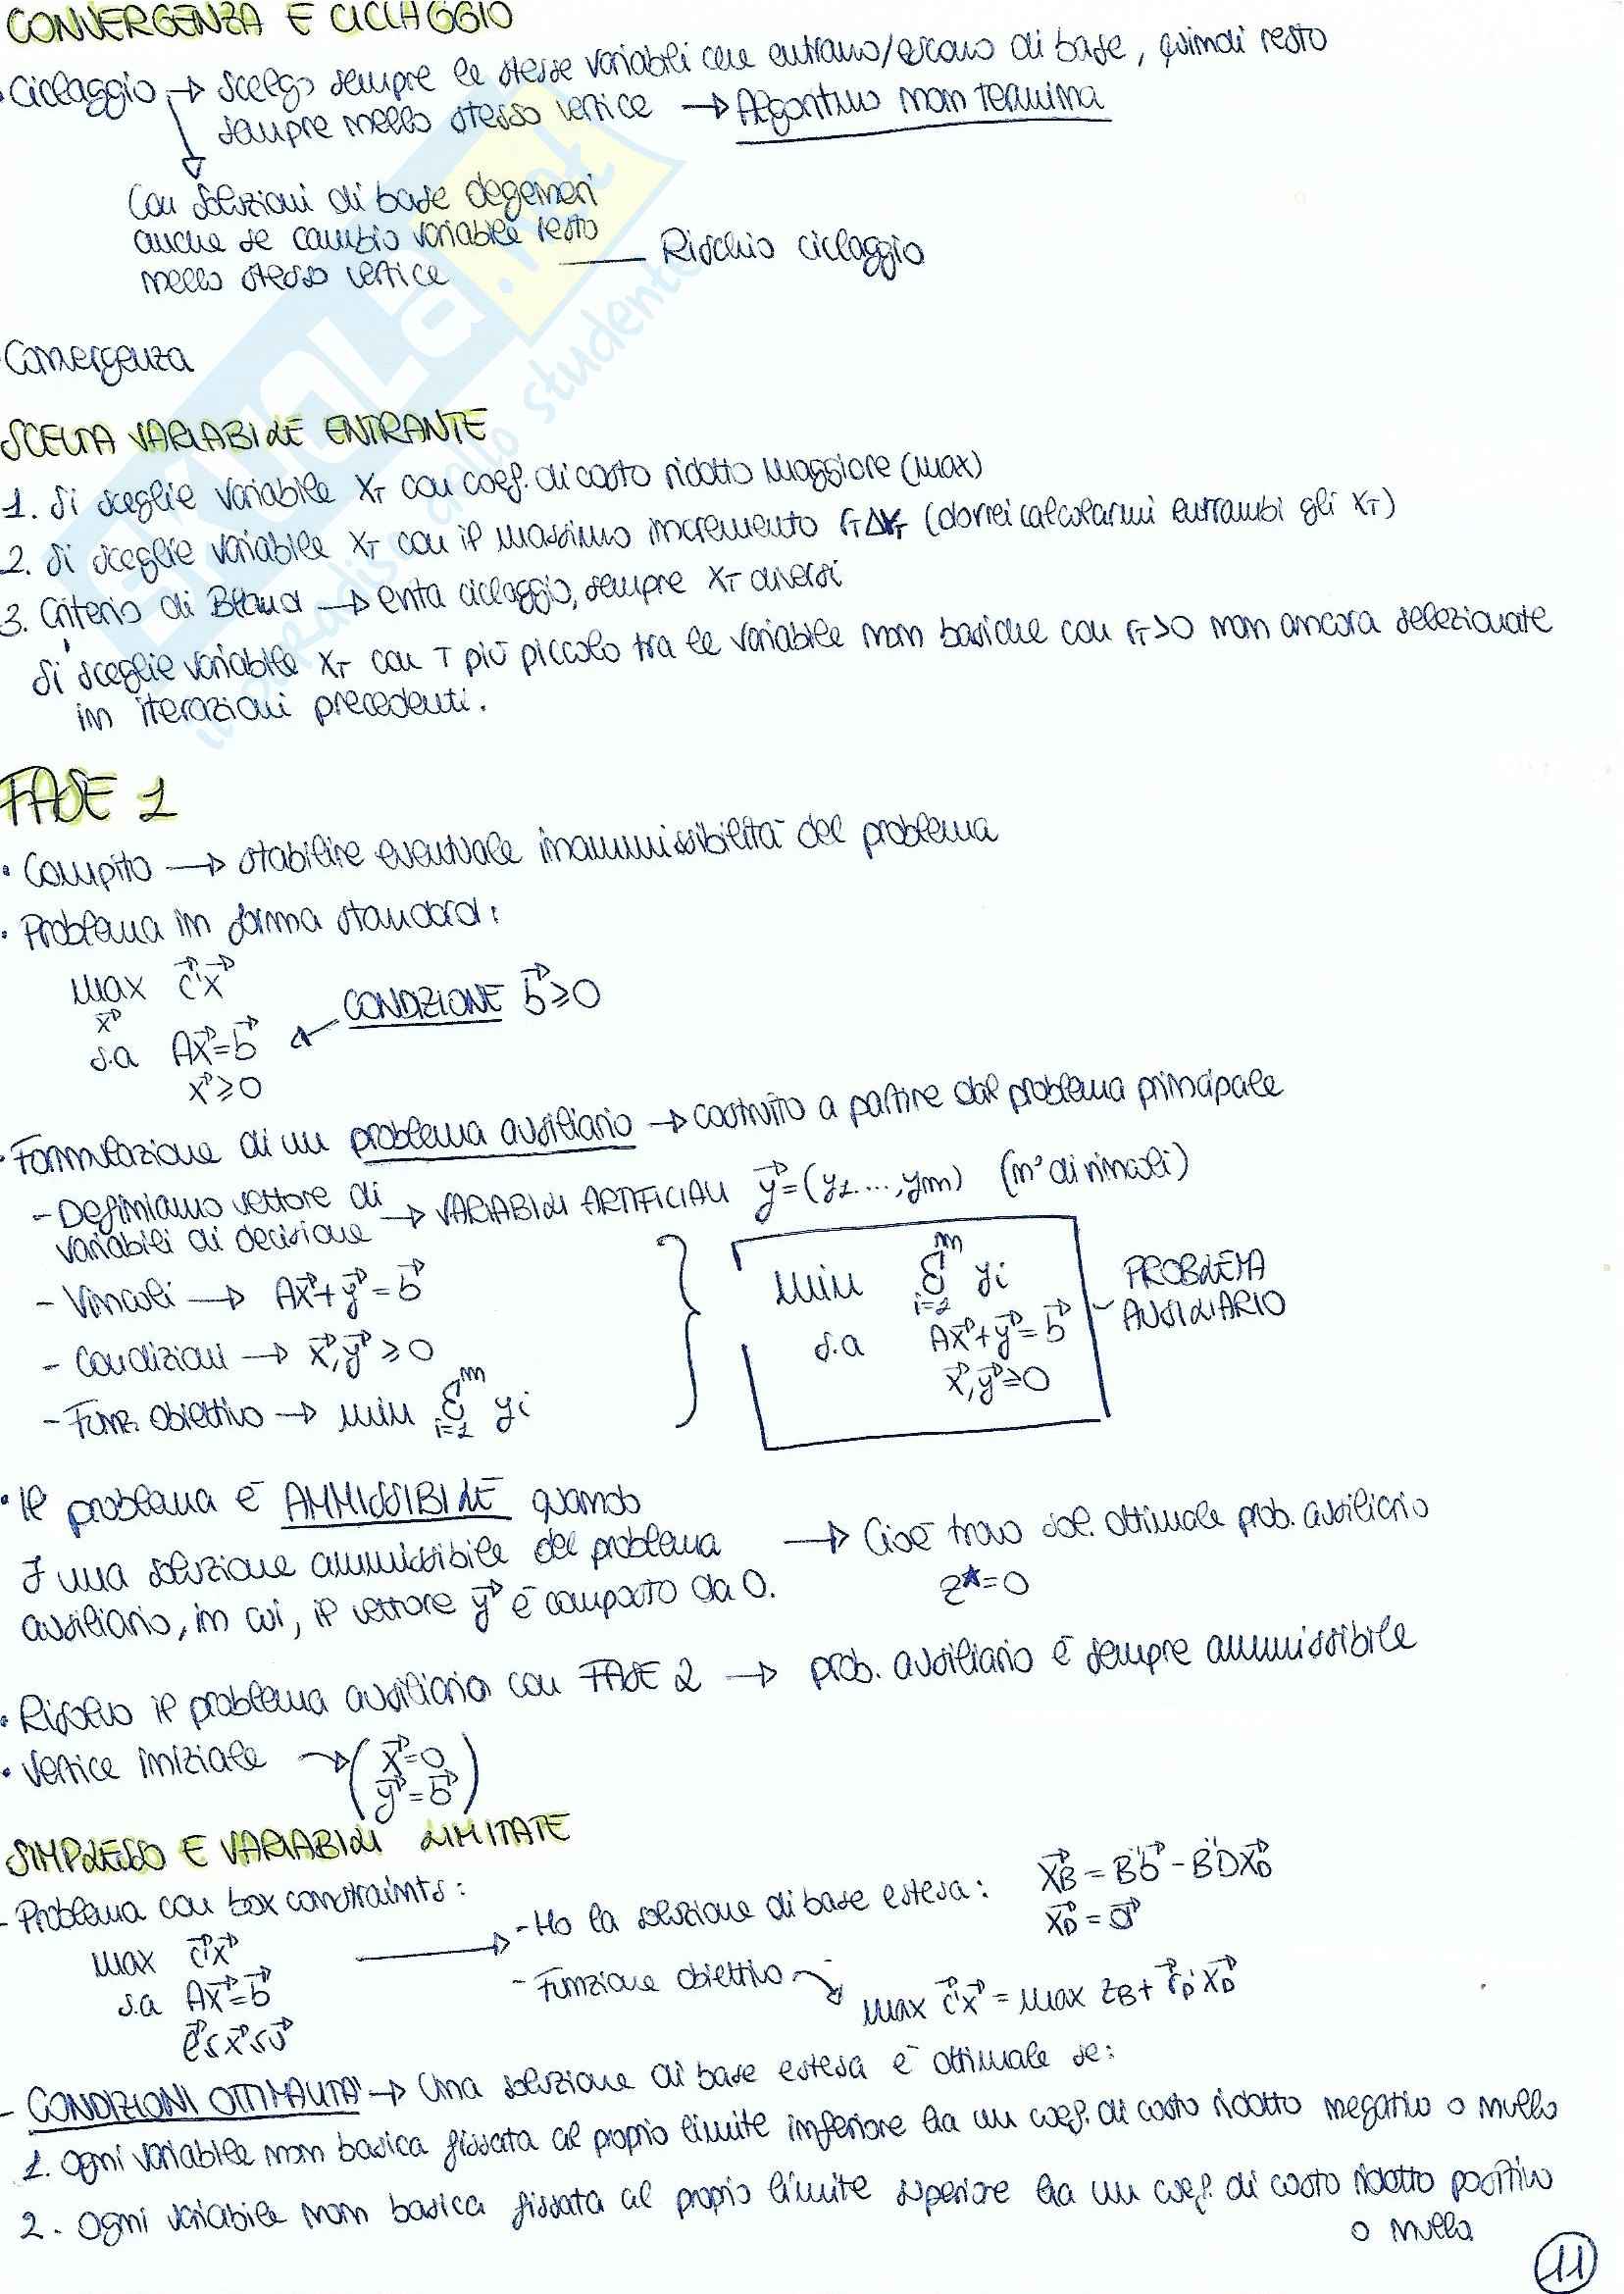 CONVERGENZA E CICLAGGIO
• Ciclaggio → Scelgo sempre le stesse variabili che entrano/escono di base, quindi resto
sempre nello stesso vertice → Algoritmo non termina
Con soluzioni di base degeneri
anche se cambio variabile resto
nello stesso vertice — Rischio ciclaggio
• Convergenza
SCELTA VARIABILE ENTRANTE
1. Si sceglie variabile XT con coef. di costo ridotto maggiore (max)
2. Si sceglie variabile XT con il massimo incremento rTΔXT (dovrei calcolarmi entrambi gli XT)
3. Criterio di Bland → evita ciclaggio, sempre XT diversi
Si sceglie variabile XT con T più piccolo tra le variabile non basiche con rT>0 non ancora selezionate
in iterazioni precedenti.
FASE 1
• Compito → stabilire eventuale inammissibilità del problema
• Problema in forma standard:
max c⃗'x⃗
x⃗
s.a Ax⃗=b⃗ ← CONDIZIONE b⃗≥0
x⃗≥0
• Formulazione di un problema ausiliario → costruito a partire dal problema principale
- Definiamo vettore di → VARIABILI ARTIFICIALI y⃗=(y1...,ym) (n° di vincoli)
variabili di decisione
- Vincoli → Ax⃗+y⃗=b⃗
- Condizioni → x⃗,y⃗≥0
- Funz. obiettivo → min Σ i=1 m yi
min Σ i=1 m yi
s.a Ax⃗+y⃗=b⃗
x⃗,y⃗≥0
PROBLEMA
AUSILIARIO
• Il problema è AMMISSIBILE quando
∃ una soluzione ammissibile del problema → Cioè trovo sol. ottimale prob. ausiliario
ausiliario, in cui, il vettore y⃗ è composto da 0. z*=0
• Risolvo il problema ausiliario con FASE 2 → prob. ausiliario è sempre ammissibile
• Vertice iniziale → (x⃗=0
y⃗=b⃗)
SIMPLESSO E VARIABILI LIMITATE
- Problema con box constraints:
max c⃗'x⃗
s.a Ax⃗=b⃗
l⃗≤x⃗≤u⃗
- Ho la soluzione di base estesa: x⃗B = B⁻¹b⃗ - B⁻¹Dx⃗D
x⃗D = 0⃗
- Funzione obiettivo → max c⃗'x⃗ = max zB + r⃗D'x⃗D
- CONDIZIONI OTTIMALITÀ → Una soluzione di base estesa è ottimale se:
1. Ogni variabile non basica fissata al proprio limite inferiore ha un coef. di costo ridotto negativo o nullo
2. Ogni variabile non basica fissata al proprio limite superiore ha un coef. di costo ridotto positivo
o nullo
11
SKUOLA.net
il paradiso dello studente